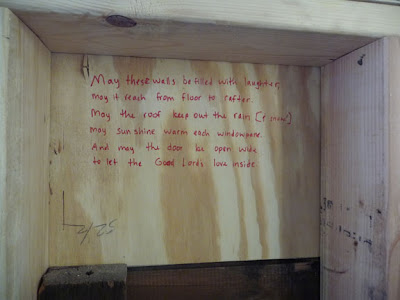 May these walls be filled with laughter,
may it reach from floor to rafter.
May the roof keep out the rain [& snow!]
may sunshine warm each windowpane.
And may the door be open wide
to let the Good Lord's love inside.